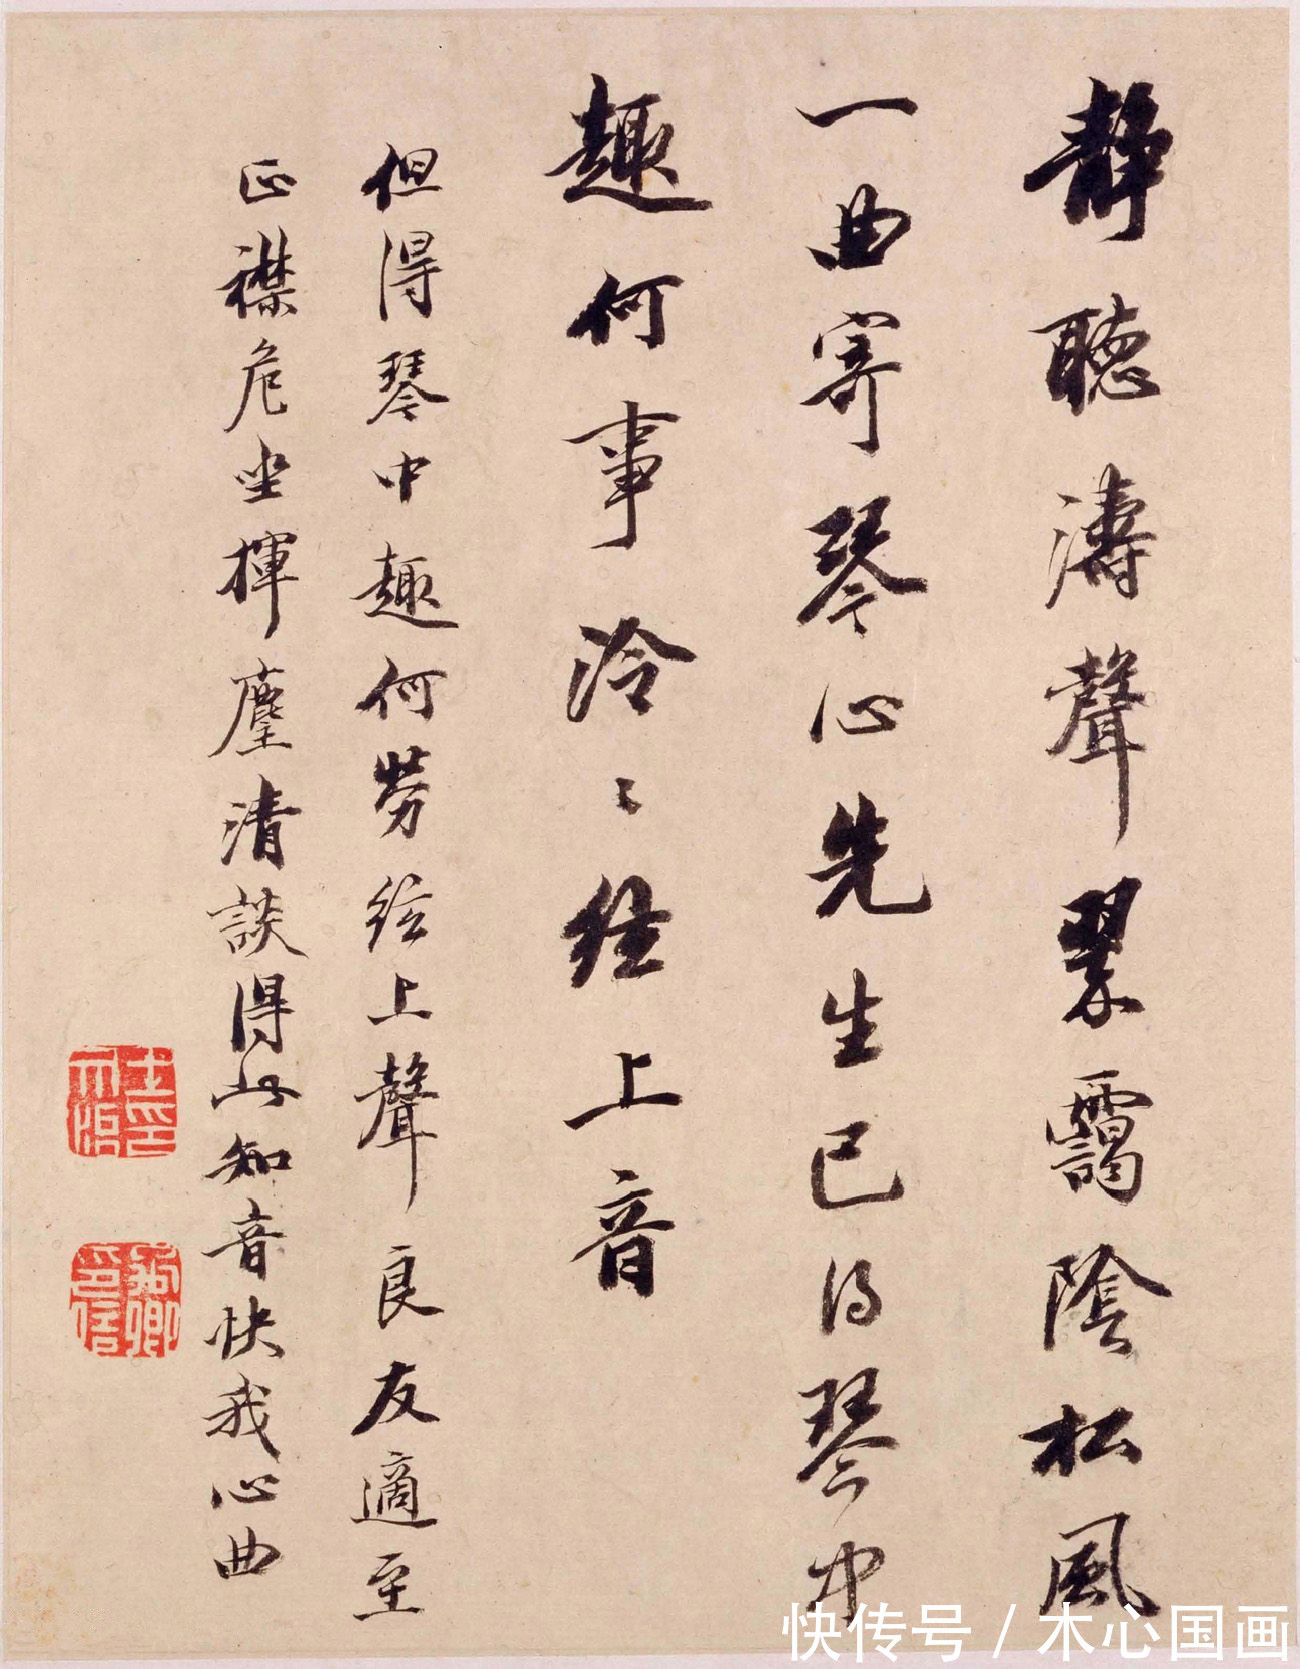 静聽濤聲翠靄陰松風
一曲寄琴心先生已得琴中
趣何事泠〻絃上音
但得琴中趣何勞絃上聲良友適至
正襟危坐揮麈清談得此知音快我心曲
快传号 / 木心国画